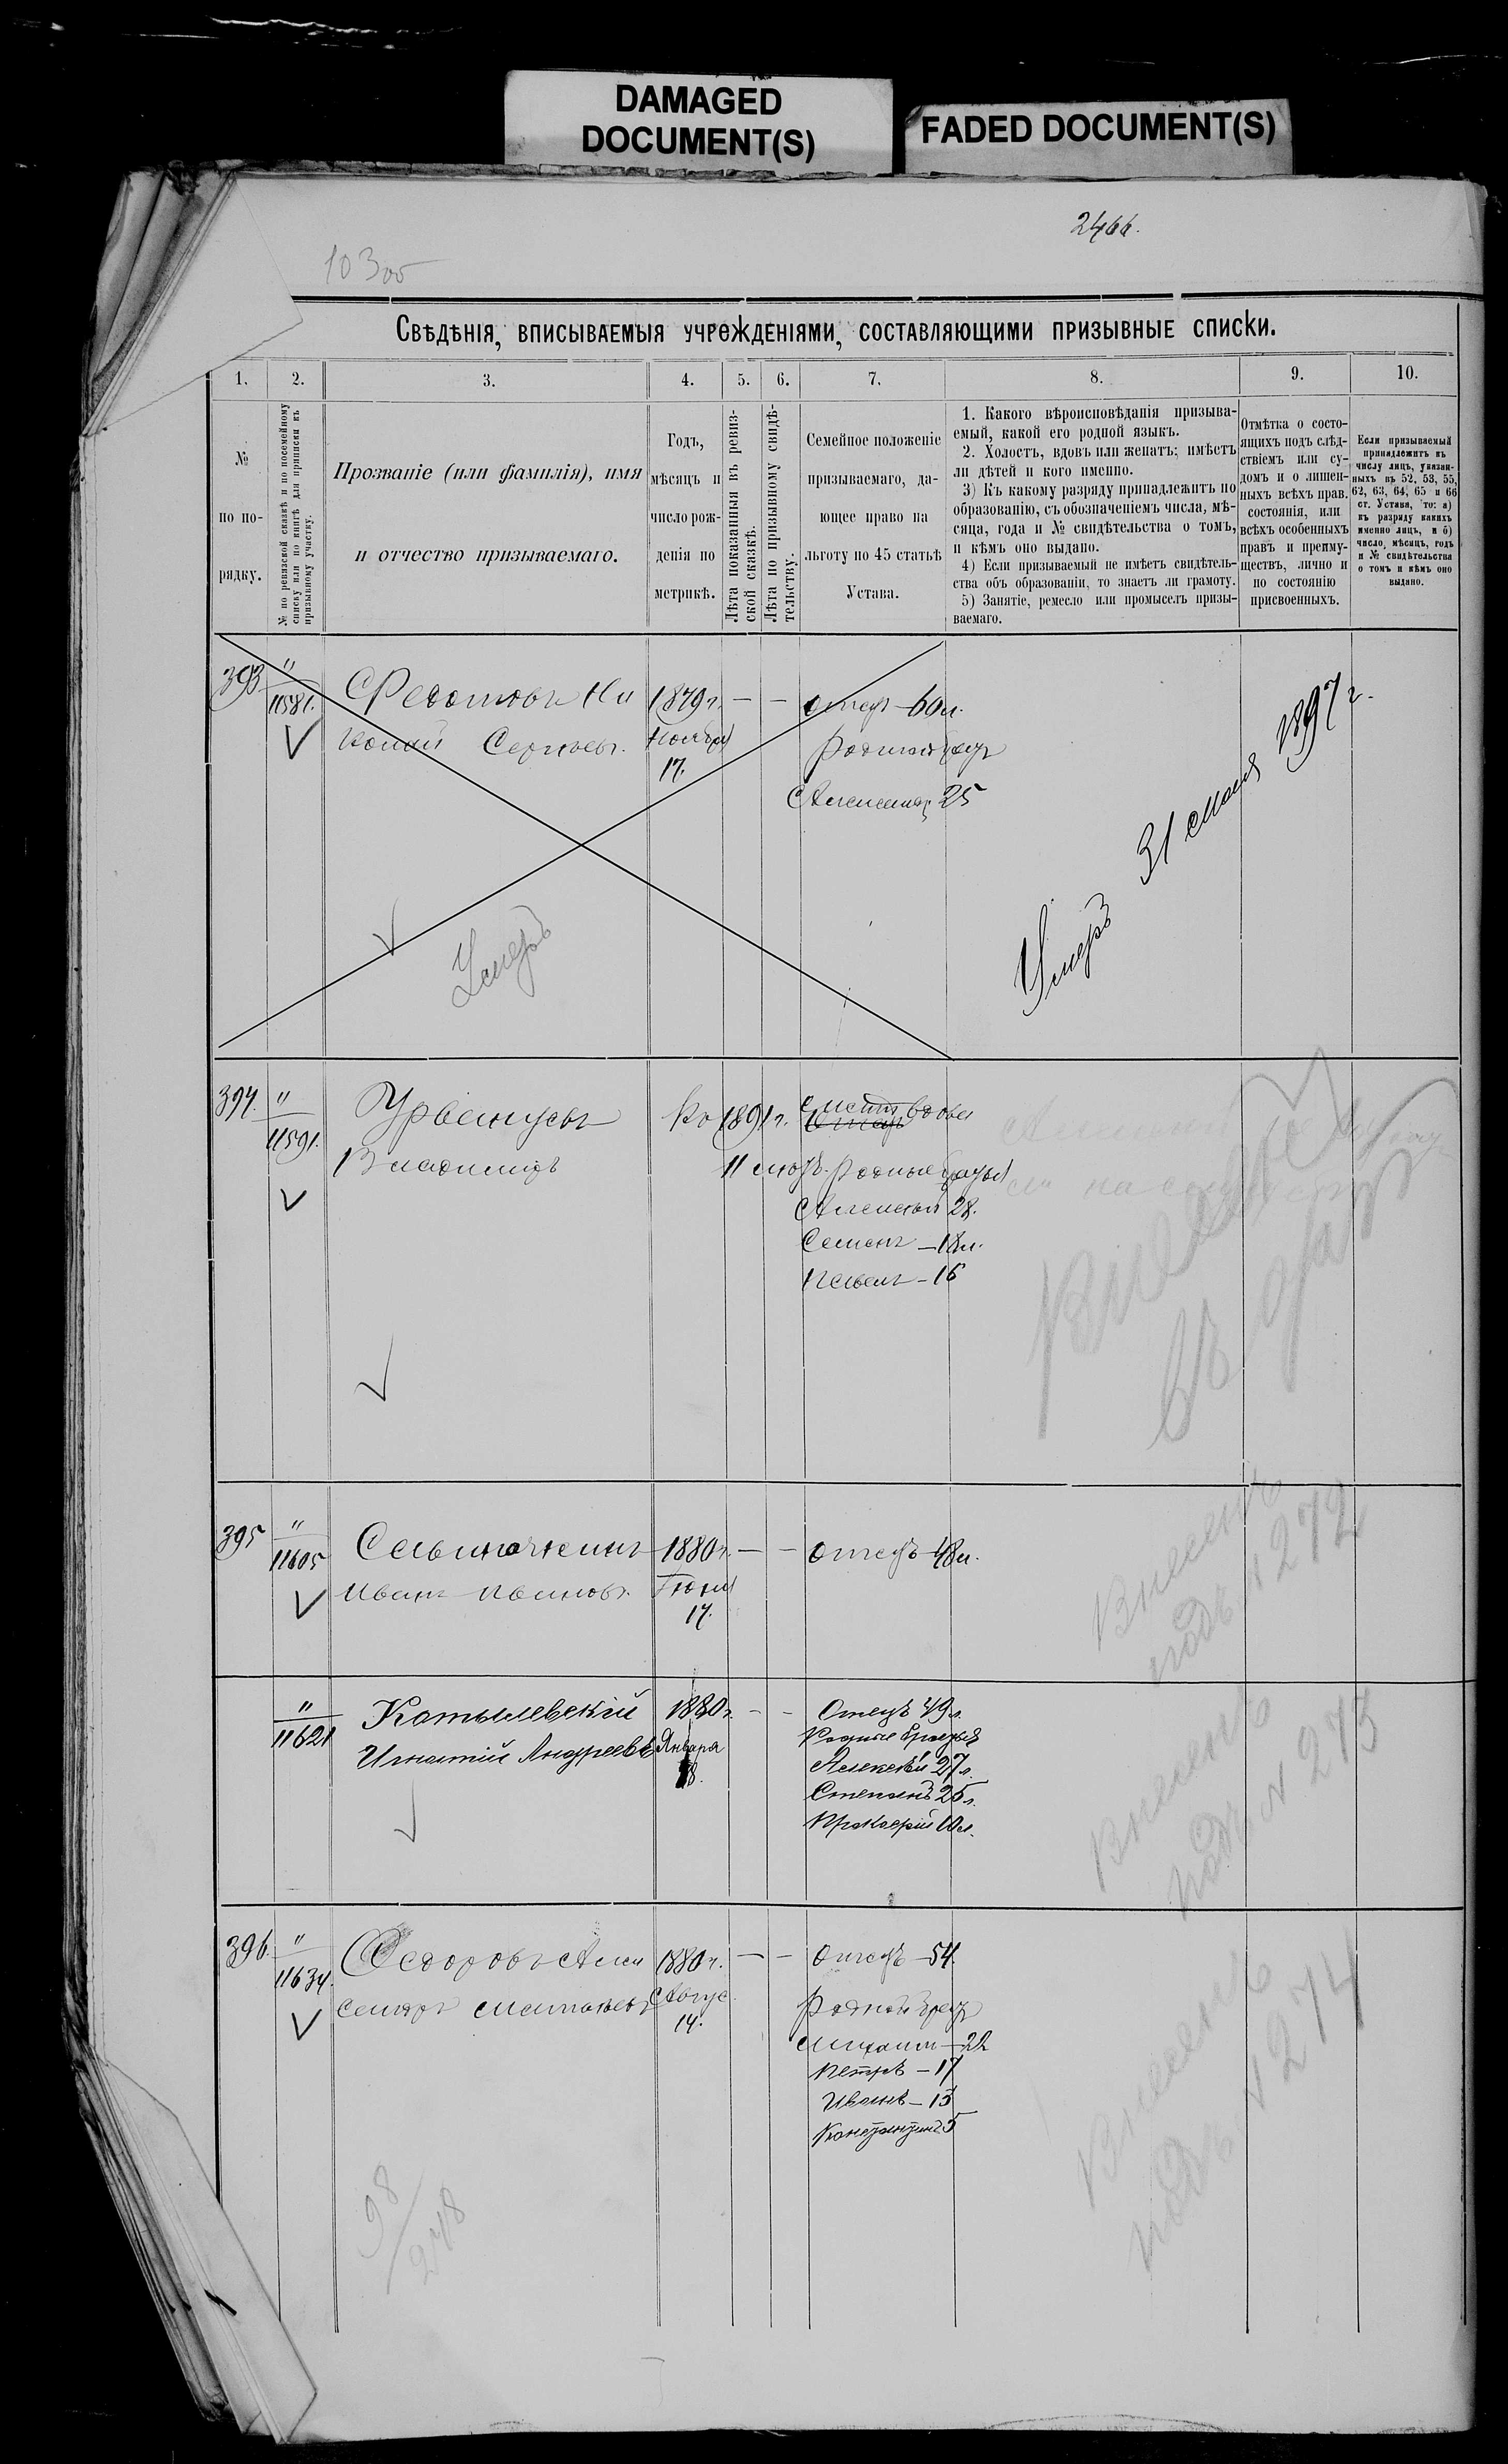 DAMAGED
DOCUMENT(S)
FADED DOCUMENT(S)
2466.
Свѣдѣнія, вписываемыя учрежденіями, составляющими призывные списки.
1.
2.
3.
4.
5.
6.
7.
8.
9.
10.
№
по по-
рядку.
№ по ревизской сказкѣ и по посемейному
списку или по книгѣ для приписки къ
призывному участку.
Прозваніе (или фамилія), имя
и отчество призываемаго.
Годъ,
мѣсяцъ и
число рож-
денія по
метрикѣ.
Лѣта показанныя въ ревиз-
ской сказкѣ.
Лѣта по призывному свидѣ-
тельству.
Семейное положеніе
призываемаго, да-
ющее право на
льготу по 45 статьѣ
Устава.
1. Какого вѣроисповѣданія призыва-
емый, какой его родной языкъ.
2. Холостъ, вдовъ или женатъ; имѣетъ
ли дѣтей и кого именно.
3) Къ какому разряду принадлежитъ по
образованію, съ обозначеніемъ числа, мѣ-
сяца, года и № свидѣтельства о томъ,
и кѣмъ оно выдано.
4) Если призываемый не имѣетъ свидѣтель-
ства объ образованіи, то знаетъ ли грамоту.
5) Занятіе, ремесло или промыселъ призы-
ваемаго.
Отмѣтка о состо-
ящихъ подъ слѣд-
ствіемъ или су-
домъ и о лишен-
ныхъ всѣхъ прав.
состоянія, или
всѣхъ особенныхъ
правъ и преиму-
ществъ, лично и
по состоянію
присвоенныхъ.
Если призываемый
принадлежитъ къ
числу лицъ, указан-
ныхъ въ 52, 53, 55,
62, 63, 64, 65 и 66
ст. Устава, то: а)
къ разряду какихъ
именно лицъ, и б)
число, мѣсяцъ, годъ
и № свидѣтельства
о томъ и кѣмъ оно
выдано.
393
"
11581.
Федотовъ Ни
колай Сергѣев.
1879 г.
Ноября
17.
—
—
Отецъ — 60 л.
Родной братъ
Александ. 25
Умеръ 31 мая 1897 г.
Умеръ
394.
"
11591.
Владиміръ
Ко 1891 г.
11 лютъ.
вдова
Родные братья
Алексѣй 28.
Семенъ — 18 л.
Павелъ — 16
395
"
11605
Иванъ Иванов.
1880 г.
Іюня
17.
—
—
Отецъ 48 л.
Внесенъ
подъ N 272
"
11621
Котылевскій
Игнатій Андреевъ
1880 г.
Января
18.
—
—
Отецъ 49 л.
Родные братья
Алексѣй 27 л.
Степанъ 25 л.
Прокофій 10 л.
Внесенъ
подъ N 273
396
"
11634.
Ѳедоровъ Але
1880 г.
Авгус.
14.
—
—
Отецъ — 54.
Родной братъ
Михаилъ — 22
Петръ — 17
Иванъ — 13
Константинъ 5
Внесенъ
подъ N 274
98
248